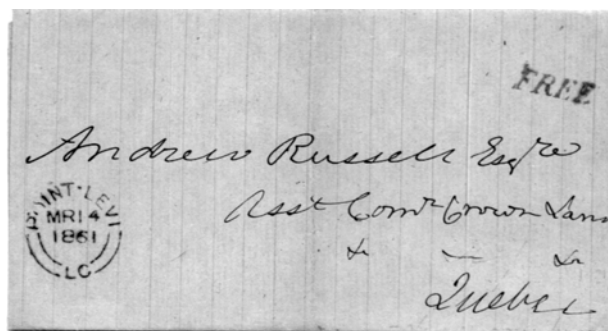 FREE
Andrew Russell Esqre
Asst Comr Crown Lan
& — &
Quebec
POINT-LEVI
MR14
1861
LC